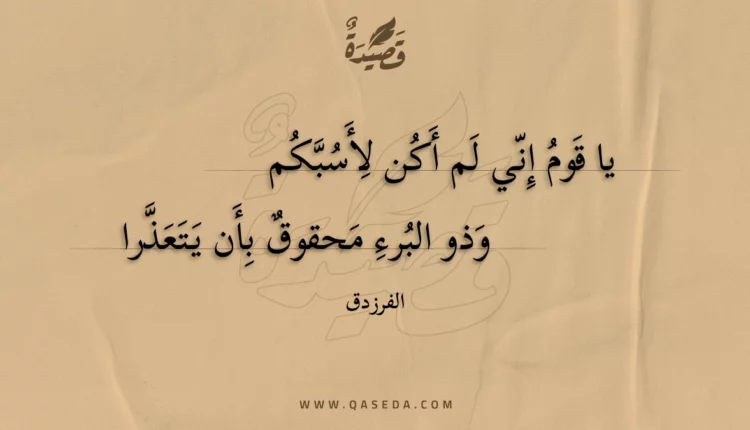 قَصِيدَةٌ
يا قَومُ إِنّي لَم أَكُن لِأَسُبَّكُم
وَذو البُرءِ مَحقوقٌ بِأَن يَتَعَذَّرا
الفرزدق
WWW.QASEDA.COM